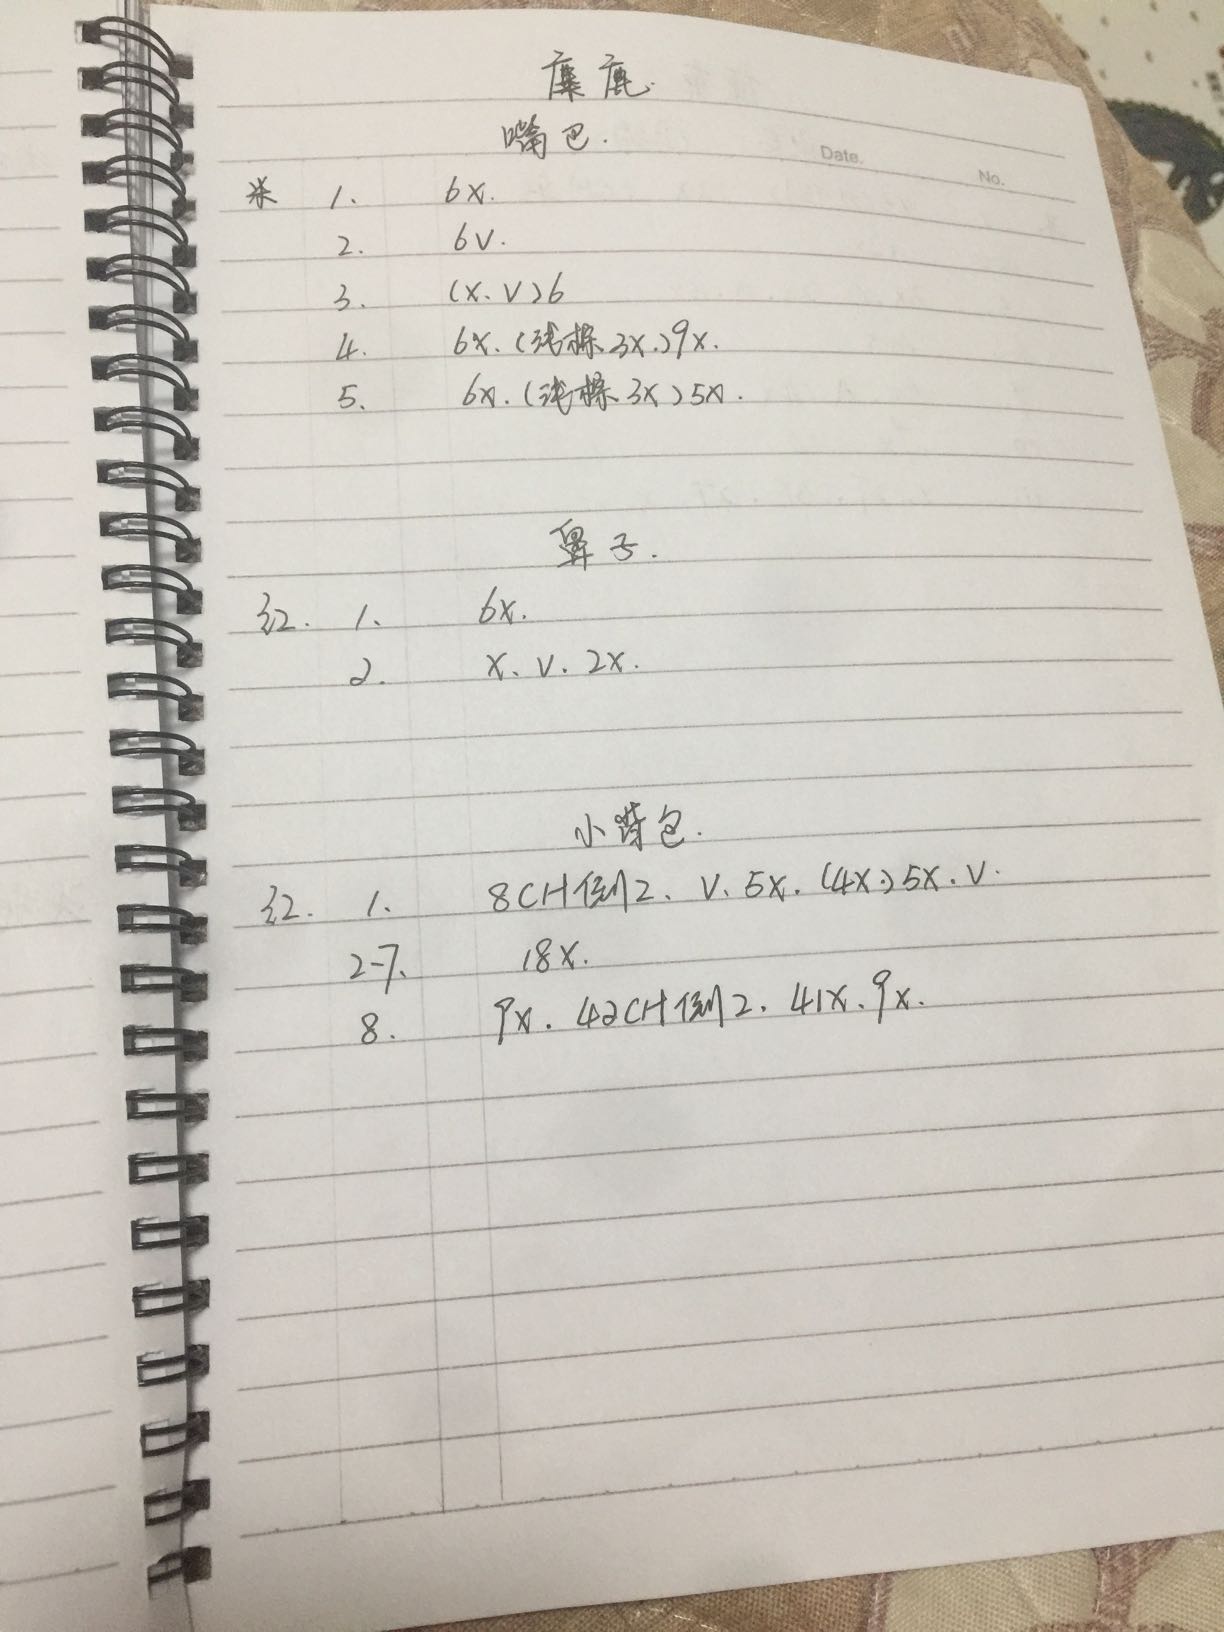 麋鹿.
嘴巴.
Date.
No.
米 1、 6X.
2. 6V.
3. (X.V)6
4. 6X.(浅棕3X.)9X.
5、 6X.(浅棕3X)5X.
鼻子.
红. 1、 6X.
2. X、V.2X.
小背包.
红. 1、 8CH倒2、V、5X.(4X)5X.V.
2-7、 18X.
8. 9X.42CH倒2、41X、9X.